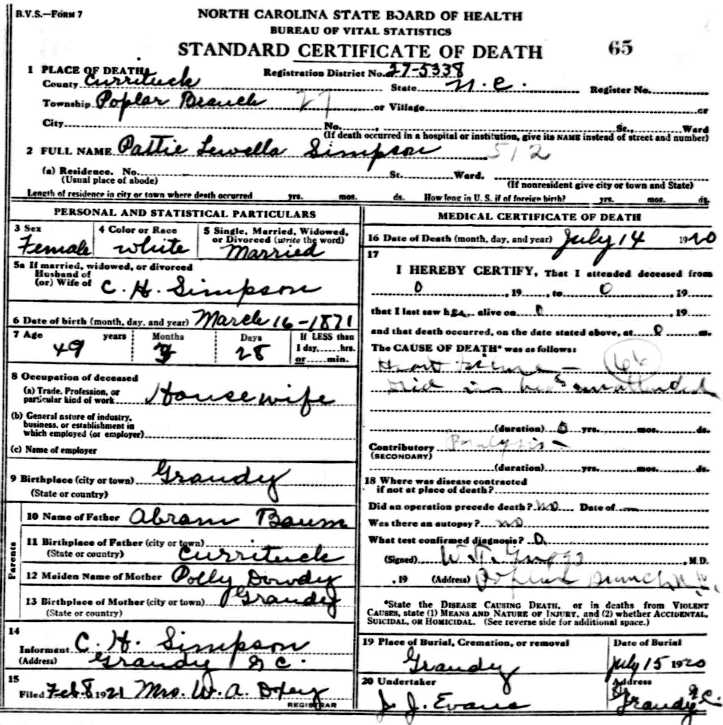 B.V.S.—FORM 7
NORTH CAROLINA STATE BOARD OF HEALTH
BUREAU OF VITAL STATISTICS
STANDARD CERTIFICATE OF DEATH 65
1 PLACE OF DEATH Registration District No. 27-5338
County Currituck State N.C. Register No.
Township Poplar Branch 27 or Village or
City No. St., Ward
(If death occurred in a hospital or institution, give its NAME instead of street and number)
2 FULL NAME Pattie Lewella Simpson 512
(a) Residence. No. St. Ward.
(Usual place of abode) (If nonresident give city or town and State)
Length of residence in city or town where death occurred yrs. mos. ds. How long in U. S. if of foreign birth? yrs. mos. ds.
PERSONAL AND STATISTICAL PARTICULARS
3 Sex 4 Color or Race 5 Single, Married, Widowed,
or Divorced (write the word)
Female white Married
5a If married, widowed, or divorced
Husband of
(or) Wife of C. H. Simpson
6 Date of birth (month, day, and year) March 16-1871
7 Age years Months Days If LESS than
49 3 28 1 day, hrs.
or min.
8 Occupation of deceased
(a) Trade, Profession, or
particular kind of work Housewife
(b) General nature of industry,
business, or establishment in
which employed (or employer)
(c) Name of employer
9 Birthplace (city or town) Grandy
(State or country)
Parents
10 Name of Father Abram Baum
11 Birthplace of Father (city or town)
(State or country) Currituck
12 Maiden Name of Mother Polly Dowdy
13 Birthplace of Mother (city or town) Grandy
(State or country)
14
Informant C. H. Simpson
(Address) Grandy N.C.
15
Filed Feb 8 1921 Mrs. W. A. Doxey
REGISTRAR
MEDICAL CERTIFICATE OF DEATH
16 Date of Death (month, day, and year) July 14 1920
17
I HEREBY CERTIFY, That I attended deceased from
0, 19 to 0, 19
that I last saw her alive on 0, 19
and that death occurred, on the date stated above, at 0 m.
The CAUSE OF DEATH* was as follows:
Heart
(duration) 0 yrs. mos. ds.
Contributory Paralysis
(SECONDARY)
(duration) yrs. mos. ds.
18 Where was disease contracted
if not at place of death?
Did an operation precede death? no Date of
Was there an autopsy? no
What test confirmed diagnosis? 0
(Signed) W. T. Griggs, M.D.
, 19 (Address) Poplar Branch N.C.
*State the DISEASE CAUSING DEATH, or in deaths from VIOLENT
CAUSES, state (1) MEANS AND NATURE OF INJURY, and (2) whether ACCIDENTAL,
SUICIDAL, OR HOMICIDAL. (See reverse side for additional space.)
19 Place of Burial, Cremation, or removal Date of Burial
Grandy July 15 1920
20 Undertaker Address
J. J. Evans Grandy N.C.